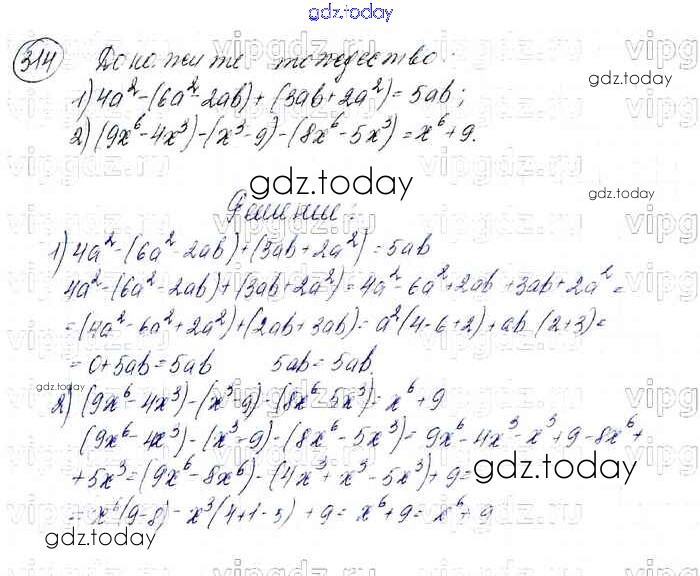 gdz.today
314 Докажите тождество:
1) 4a² - (6a² - 2ab) + (3ab + 2a²) = 5ab;
gdz.today
2) (9x⁶ - 4x³) - (x³ - 9) - (8x⁶ - 5x³) = x⁶ + 9.
gdz.today
Решение:
1) 4a² - (6a² - 2ab) + (3ab + 2a²) = 5ab
4a² - (6a² - 2ab) + (3ab + 2a²) = 4a² - 6a² + 2ab + 3ab + 2a² =
= (4a² - 6a² + 2a²) + (2ab + 3ab) = a²(4 - 6 + 2) + ab (2 + 3) =
= 0 + 5ab = 5ab 5ab = 5ab.
gdz.today
gdz.today
2) (9x⁶ - 4x³) - (x³ - 9) - (8x⁶ - 5x³) = x⁶ + 9
(9x⁶ - 4x³) - (x³ - 9) - (8x⁶ - 5x³) = 9x⁶ - 4x³ - x³ + 9 - 8x⁶ +
+ 5x³ = (9x⁶ - 8x⁶) - (4x³ + x³ - 5x³) + 9 =
gdz.today
= x⁶(9 - 8) - x³(4 + 1 - 5) + 9 = x⁶ + 9 = x⁶ + 9
gdz.today